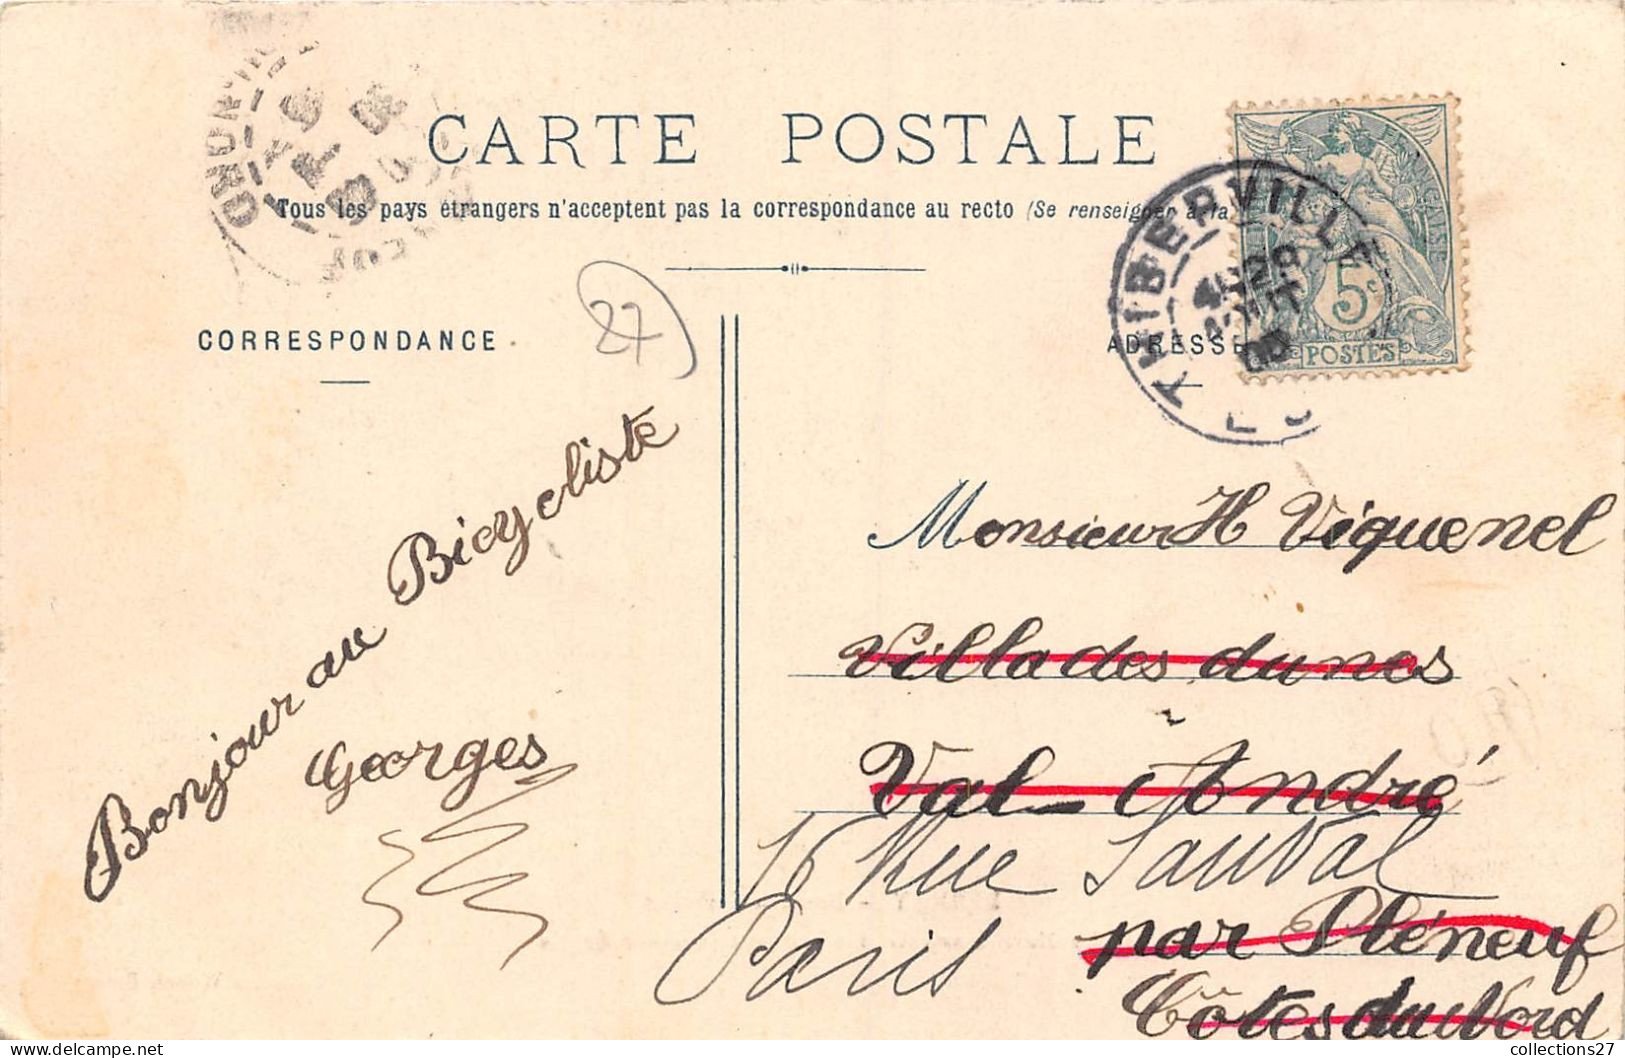 CARTE POSTALE
Tous les pays étrangers n'acceptent pas la correspondance au recto (Se renseigner à la
CORRESPONDANCE
27
Bonjour au Bicycliste
Georges
ADRESSE
THIBERVILLE
28
AOUT
FRANÇAISE
5c
POSTES
Monsieur H Viquenel
Villa des dunes
Val-André
16 Rue Sauval
Paris
par Pléneuf
Côtes du Nord
collections27